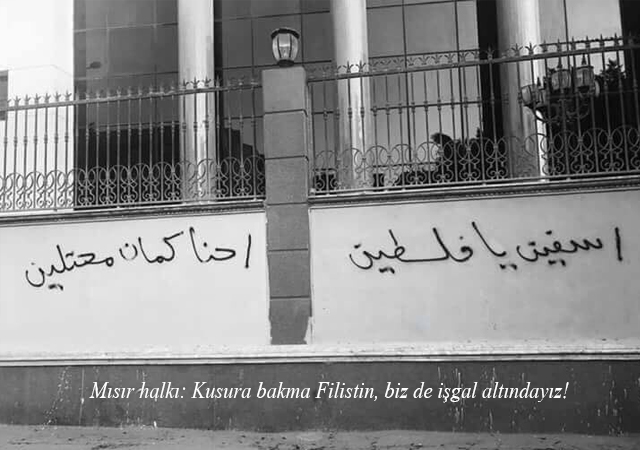 اسفين يا فلسطين
احنا كمان محتلين
Mısır halkı: Kusura bakma Filistin, biz de işgal altındayız!